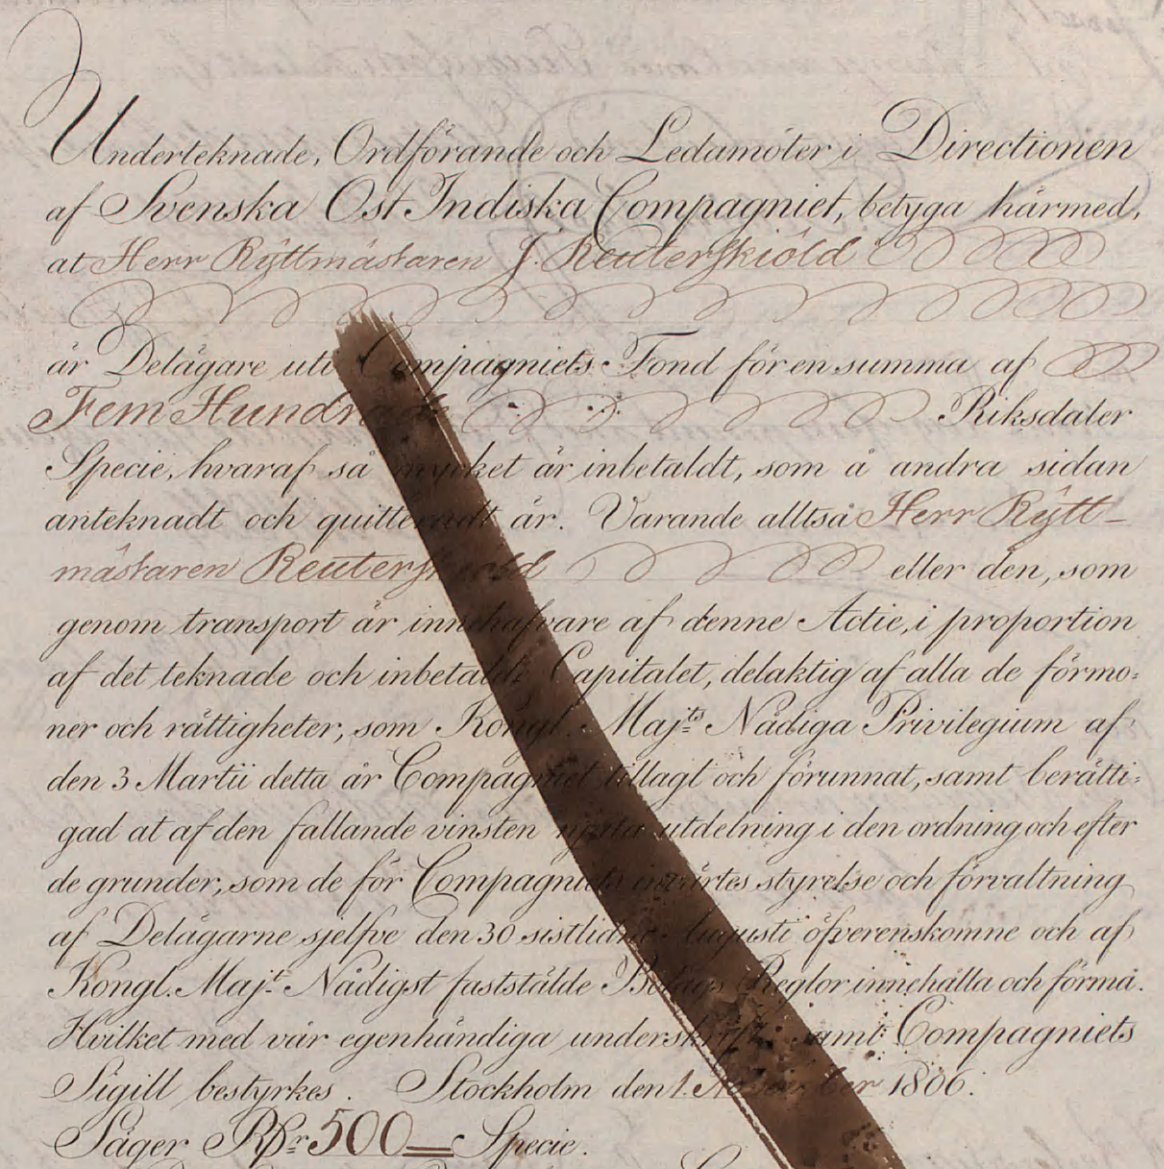 Underteknade, Ordförande och Ledamöter i Directionen
af Svenska Ost Indiska Compagniet, betyga härmed,
at Herr Ryttmästaren J. Reuterskiöld
är Delägare uti Compagniets Fond för en summa af
Fem Hundrade Riksdaler
Specie, hvaraf så mycket är inbetaldt, som å andra sidan
anteknadt och quitteradt är. Varande alltså Herr Rytt-
mästaren Reuterskiöld eller den, som
genom transport är innehafvare af denne Actie, i proportion
af det teknade och inbetalde Capitalet, delaktig af alla de förmo:
ner och rättigheter, som Kongl. Majts Nådiga Privilegium af
den 3 Martii detta år Compagniet tillagt och förunnat, samt berätti:
gad at af den fallande vinsten njuta utdelning i den ordning och efter
de grunder, som de för Compagniets invärtes styrelse och förvaltning
af Delägarne sjelfve den 30 sistlidne Augusti öfverenskomne och af
Kongl. Majt Nådigst faststälde Bolags Reglor innehålla och förmå.
Hvilket med vår egenhändiga underskrift samt Compagniets
Sigill bestyrkes. Stockholm den 1. November 1806.
Säger Rdr 500 Specie.